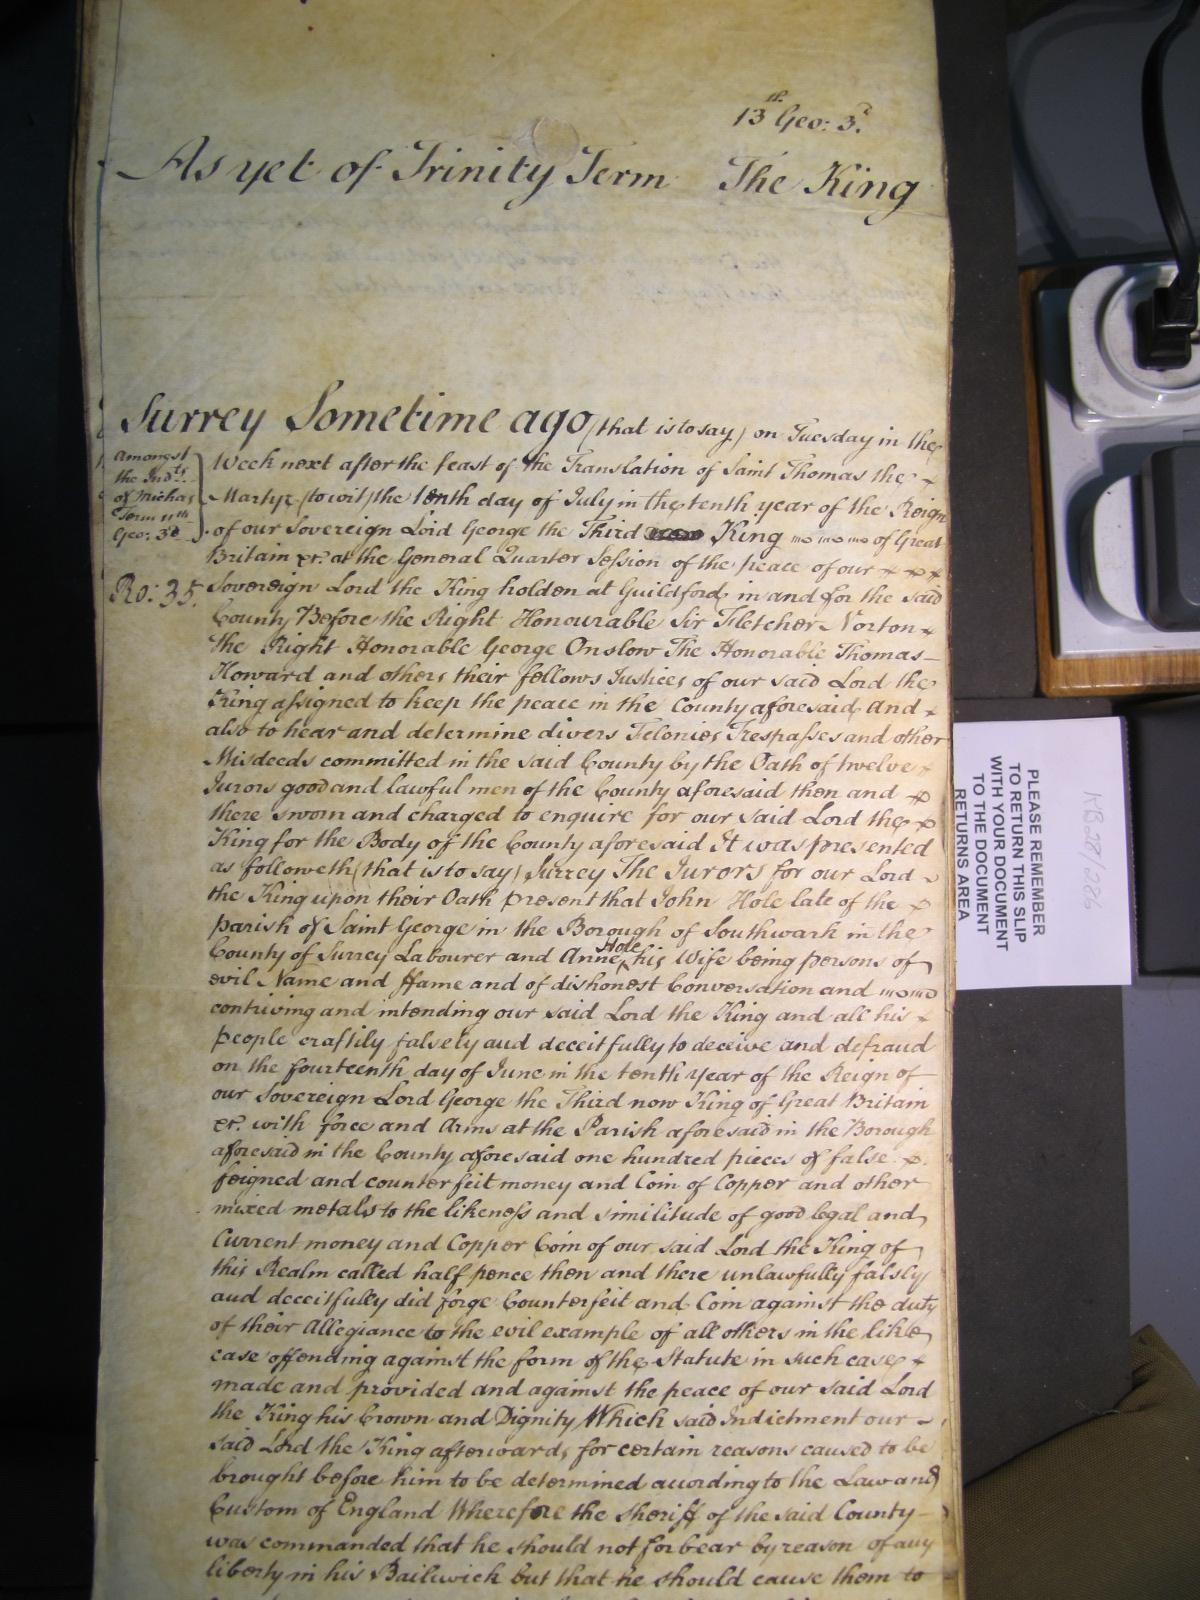 13th Geo: 3d.
As yet of Trinity Term The King
Surrey Sometime ago (that is to say) on Tuesday in the
Week next after the feast of the Translation of Saint Thomas the
Martyr (to wit) the tenth day of July in the tenth year of the Reign
of our Sovereign Lord George the Third King of Great
Britain &c. at the General Quarter Session of the peace of our
Amongst
the Indts
of Michas
Term 11th
Geo: 3d
Ro: 35.
Sovereign Lord the King holden at Guildford in and for the said
County Before the Right Honourable Sir Fletcher Norton
the Right Honorable George Onslow The Honorable Thomas
Howard and others their fellows Justices of our said Lord the
King assigned to keep the peace in the County aforesaid And
also to hear and determine divers Felonies Trespasses and other
Misdeeds committed in the said County by the Oath of twelve
Jurors good and lawful men of the County aforesaid then and
there sworn and charged to enquire for our said Lord the
King for the Body of the County aforesaid It was presented
as followeth (that is to say) Surrey The Jurors for our Lord
the King upon their Oath present that John Hole late of the
parish of Saint George in the Borough of Southwark in the
County of Surrey Labourer and Anne Hole his Wife being persons of
evil Name and Fame and of dishonest Conversation and
contriving and intending our said Lord the King and all his
people craftily falsely and deceitfully to deceive and defraud
on the fourteenth day of June in the tenth year of the Reign of
our Sovereign Lord George the Third now King of Great Britain
&c. with force and Arms at the Parish aforesaid in the Borough
aforesaid in the County aforesaid one hundred pieces of false
feigned and counterfeit money and Coin of Copper and other
mixed metals to the likeness and similitude of good legal and
Current money and Copper Coin of our said Lord the King of
this Realm called half pence then and there unlawfully falsly
and deceitfully did forge Counterfeit and Coin against the duty
of their Allegiance to the evil example of all others in the like
case offending against the form of the Statute in such case
made and provided and against the peace of our said Lord
the King his Crown and Dignity Which said Indictment our
said Lord the King afterwards for certain reasons caused to be
brought before him to be determined according to the Law and
Custom of England Wherefore the Sheriff of the said County
was commanded that he should not forbear by reason of any
liberty in his Bailiwick but that he should cause them to
PLEASE REMEMBER
TO RETURN THIS SLIP
WITH YOUR DOCUMENT
TO THE DOCUMENT
RETURNS AREA
KB28/286